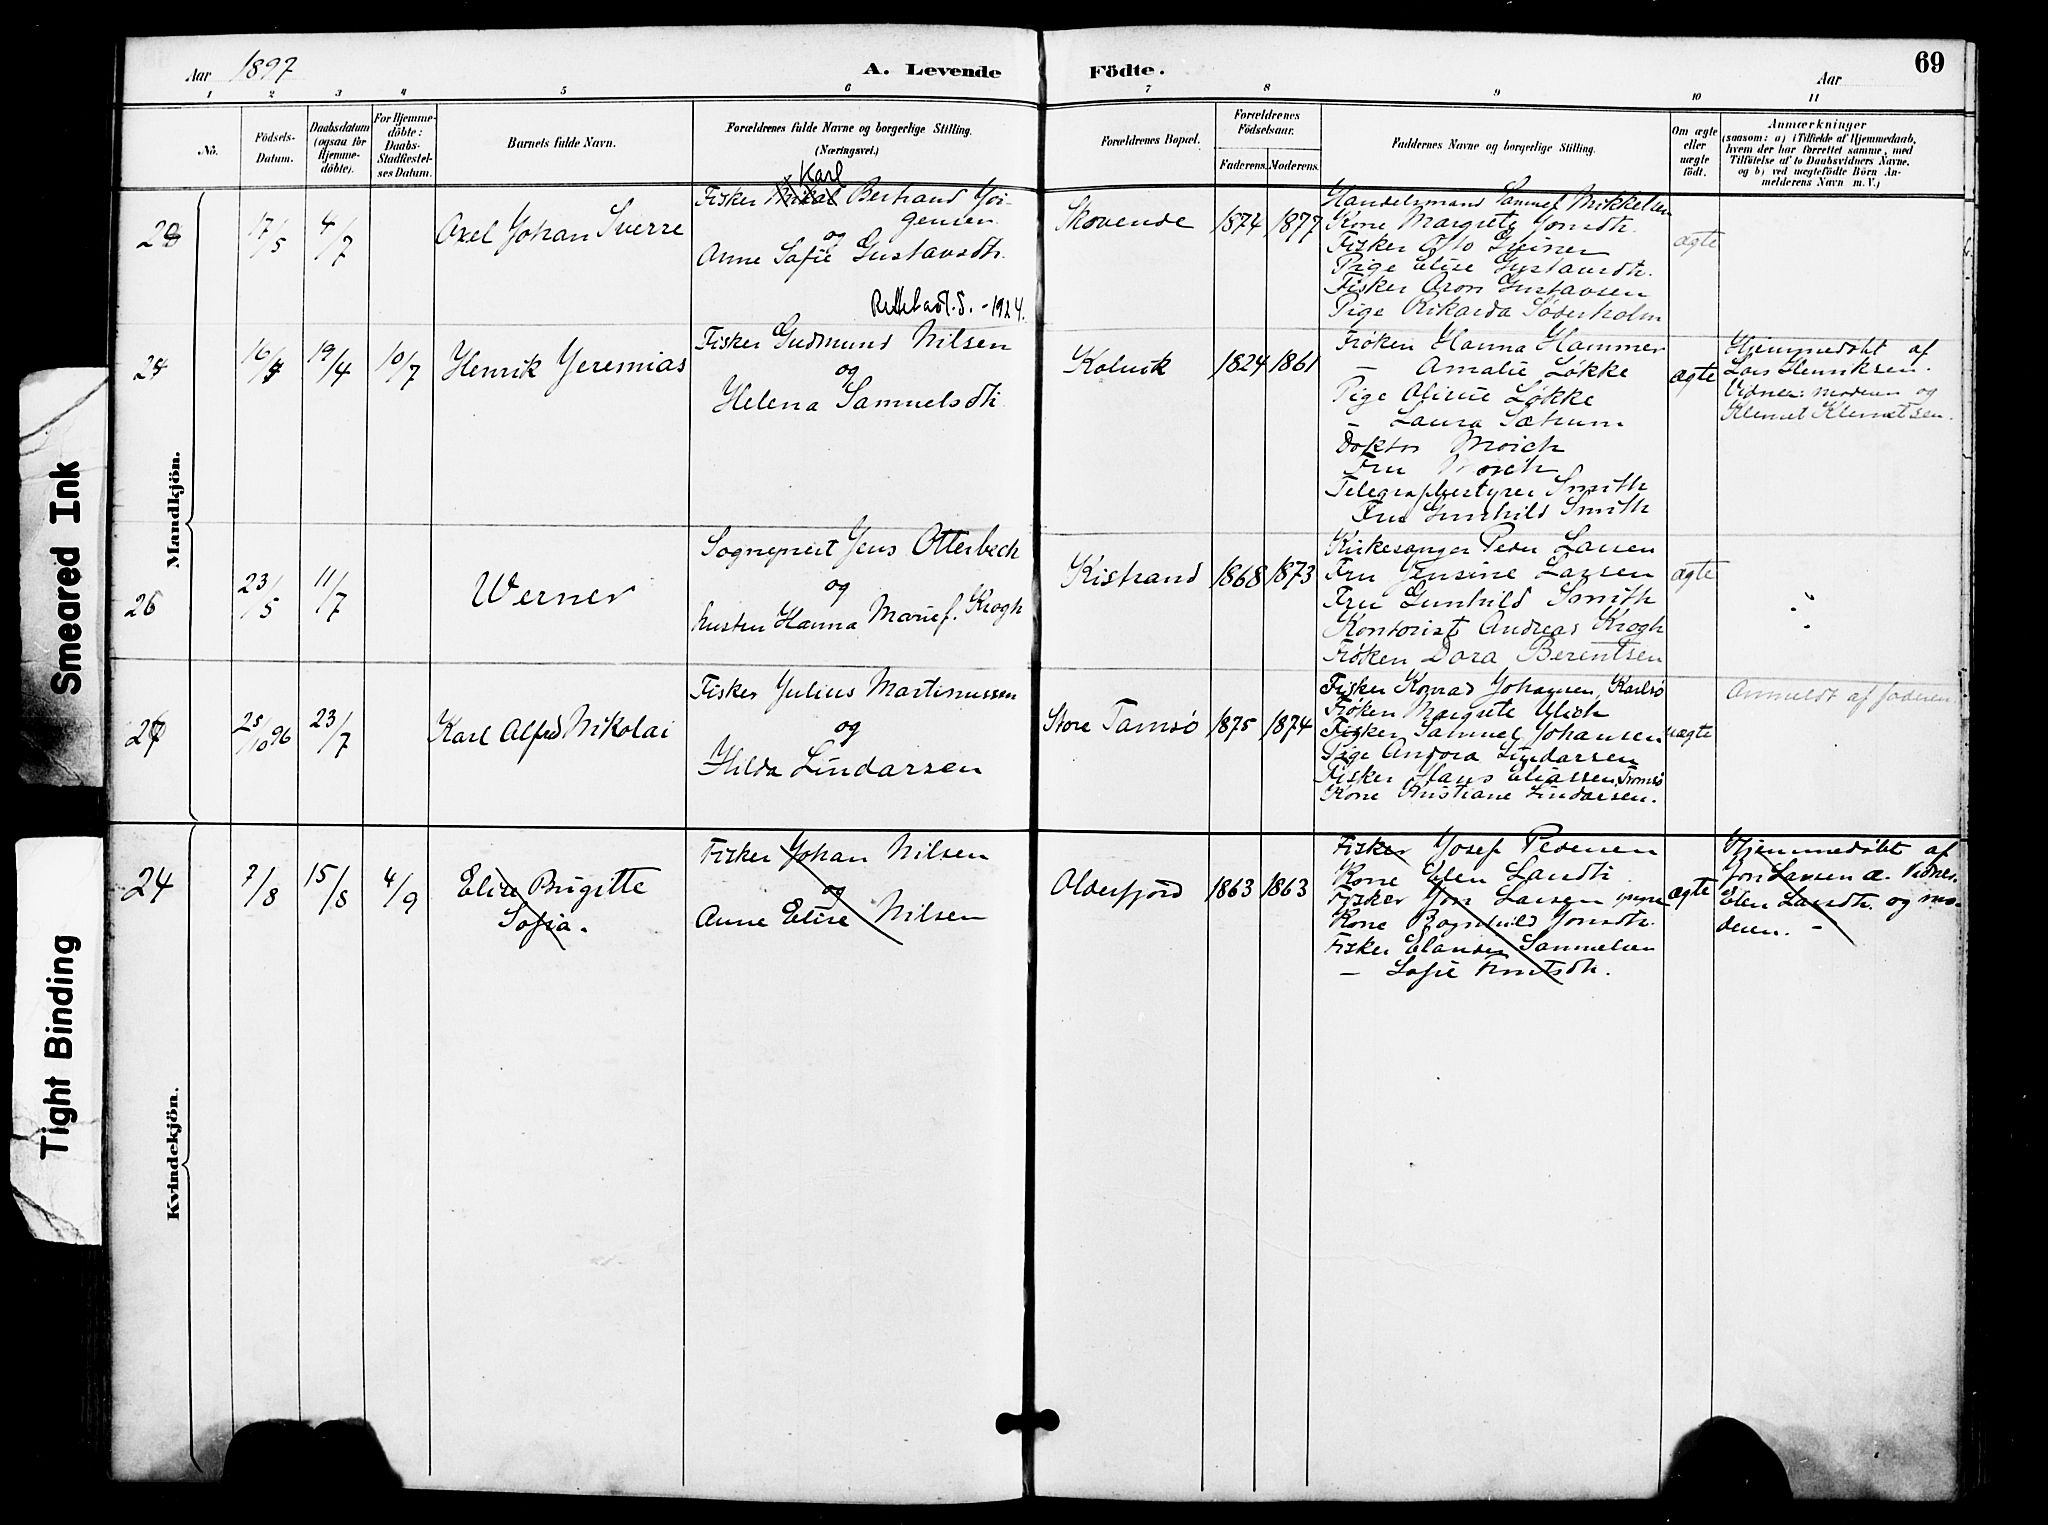 Aar 1897
A. Levende
Födte.
Aar
69
1 2 3 4 5 6 7 8 9 10 11
No.
Födsels-
Datum.
Daabsdatum
(ogsaa for
Hjemme-
döbte).
For Hjemme-
döbte:
Daabs-
Stadfestel-
ses Datum.
Barnets fulde Navn.
Forældrenes fulde Navne og borgerlige Stilling.
(Næringsvei.)
Forældrenes Bopæl.
Forældrenes
Födselsaar.
Faderens.
Moderens.
Faddernes Navne og borgerlige Stilling.
Om ægte
eller
uægte
födt.
Anmærkninger
(saasom: a) i Tilfælde af Hjemmedaab,
hvem der har forrettet samme, med
Tilföielse af to Daabsvidners Navne,
og b) ved uægtefödte Börn An-
melderens Navn m. V.)
Mandkjön.
17/5
4/7
Axel Johan Sverre
Karl
Fisker Mikal Bertrand Jör-
gensen
og
Anne Sofie Gustavsdtr.
Skovende
1874
1877
Handelsmand Sammel Mikkelsen
Kone Margrete Jonsdtr.
Fisker Greiner
Pige Elise Gustavsdtr.
Fisker Aron Gustavsen
Pige Rikarda Söderholm
ægte
1924.
19/4
10/7
Henrik Jeremias
Fisker Gudmund Nilsen
og
Helena Samuelsdtr.
Kolvik
1824
1861
Fröken Hanna Hammer
— Amalie Løkke
Pige Løkke
— Laura Sætrum
Doktor Moich
Fru Moich
Telegrafbestyrer Smith
Fru Gunhild Smith
ægte
Hjemmedøbt af
Lars Henriksen.
Vidner: moderen og
Klemet Klemetsen.
26
23/5
11/7
Werner
Sognepræst Jens Otterbech
og
hustru Hanna Marie f. Krogh
Kistrand
1868
1873
Kirkesanger Peder Larsen
Fru Jensine Larsen
Fru Gunhild Smith
Kontorist Andreas Krogh
Frøken Dora Berentsen
ægte
27
25/10 96
23/7
Karl Alfred Nikolai
Fisker Julius Martinussen
og
Hilda Lindarsen
Store Tamsö
1875
1874
Fisker Konrad Johansen, Karlsö
Frøken Margrete Ulich
Fisker Sammel Johansen
Pige Andora Lindarsen
Fisker Hans Eliassen, Tromsö
Kone Kristiane Lindarsen.
uægte
Anmeldt af faderen
Kvindekjön.
24
7/8
15/8
4/9
Elise Brigitte
Sofia.
Fisker Johan Nilsen
og
Anne Elise Nilsen
Olderfjord
1863
1863
Fisker Josef Pedersen
Kone Elen Larsdtr.
Fisker Jon Larsen yngre
Kone Ragnhild Jonsdtr.
Fisker Sammelsen
— Sofie Knutsdtr.
ægte
Hjemmedöbt af
Jon Larsen æ. Vidner:
Elen Larsdtr. og mo-
deren. —
Smeared Ink
Tight Binding